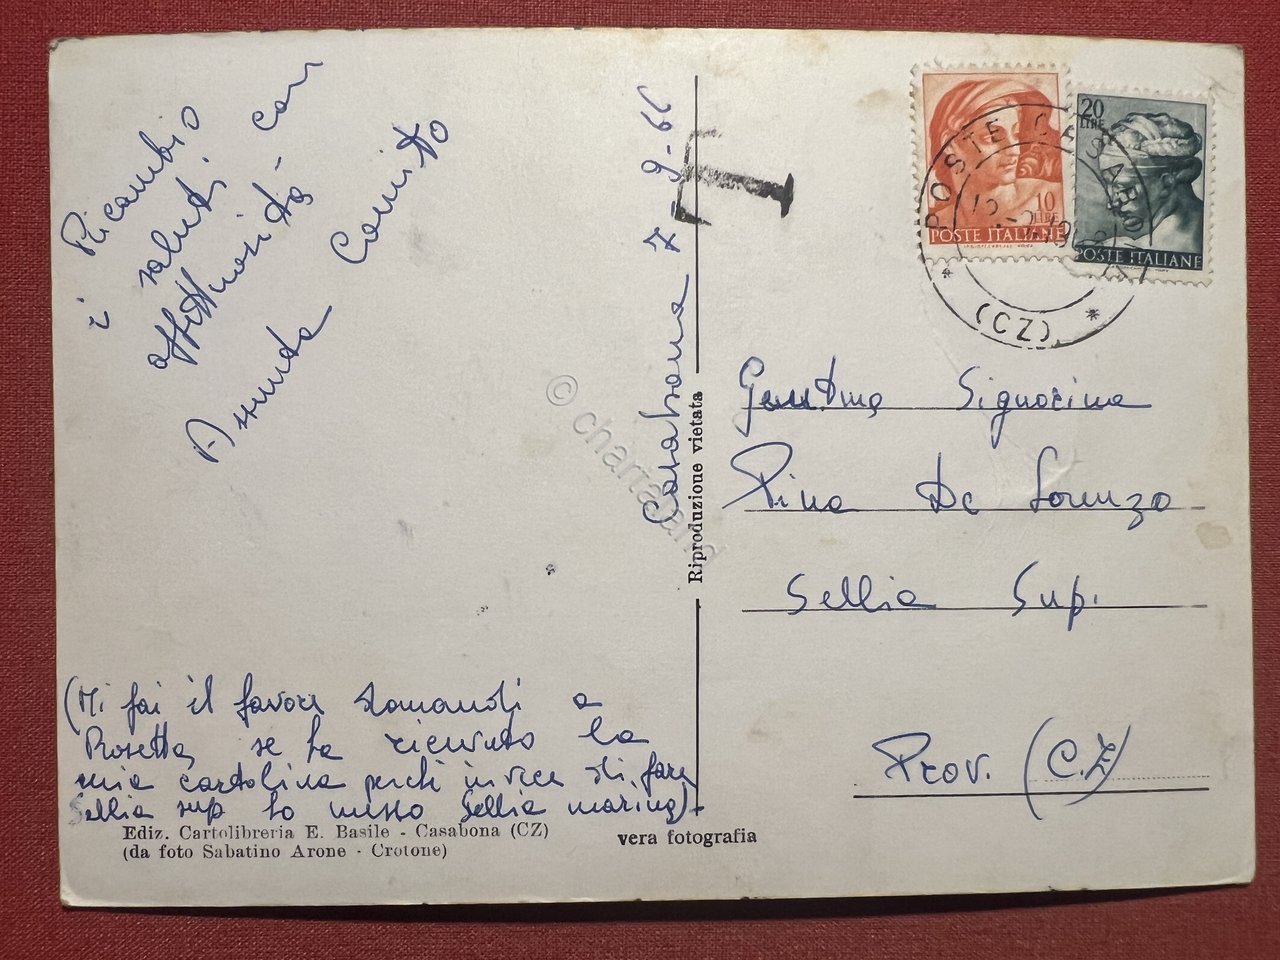 Ricambio
i saluti
affettuosità - con
Assunta Comito
Casabona 7-9-66
T
10
LIRE
POSTE ITALIANE
20
LIRE
POSTE ITALIANE
POSTE
(CZ)
Gentma Signorina
Pina De Lorenzo
Sellia Sup.
Prov. (CZ)
Riproduzione vietata
© chartaland
(Mi fai il favore domandi a
Rosetta se ha ricevuto la
mia cartolina perchè invece di fare
Sellia sup ho messo Sellia marina)
Ediz. Cartolibreria E. Basile - Casabona (CZ)
(da foto Sabatino Arone - Crotone)
vera fotografia